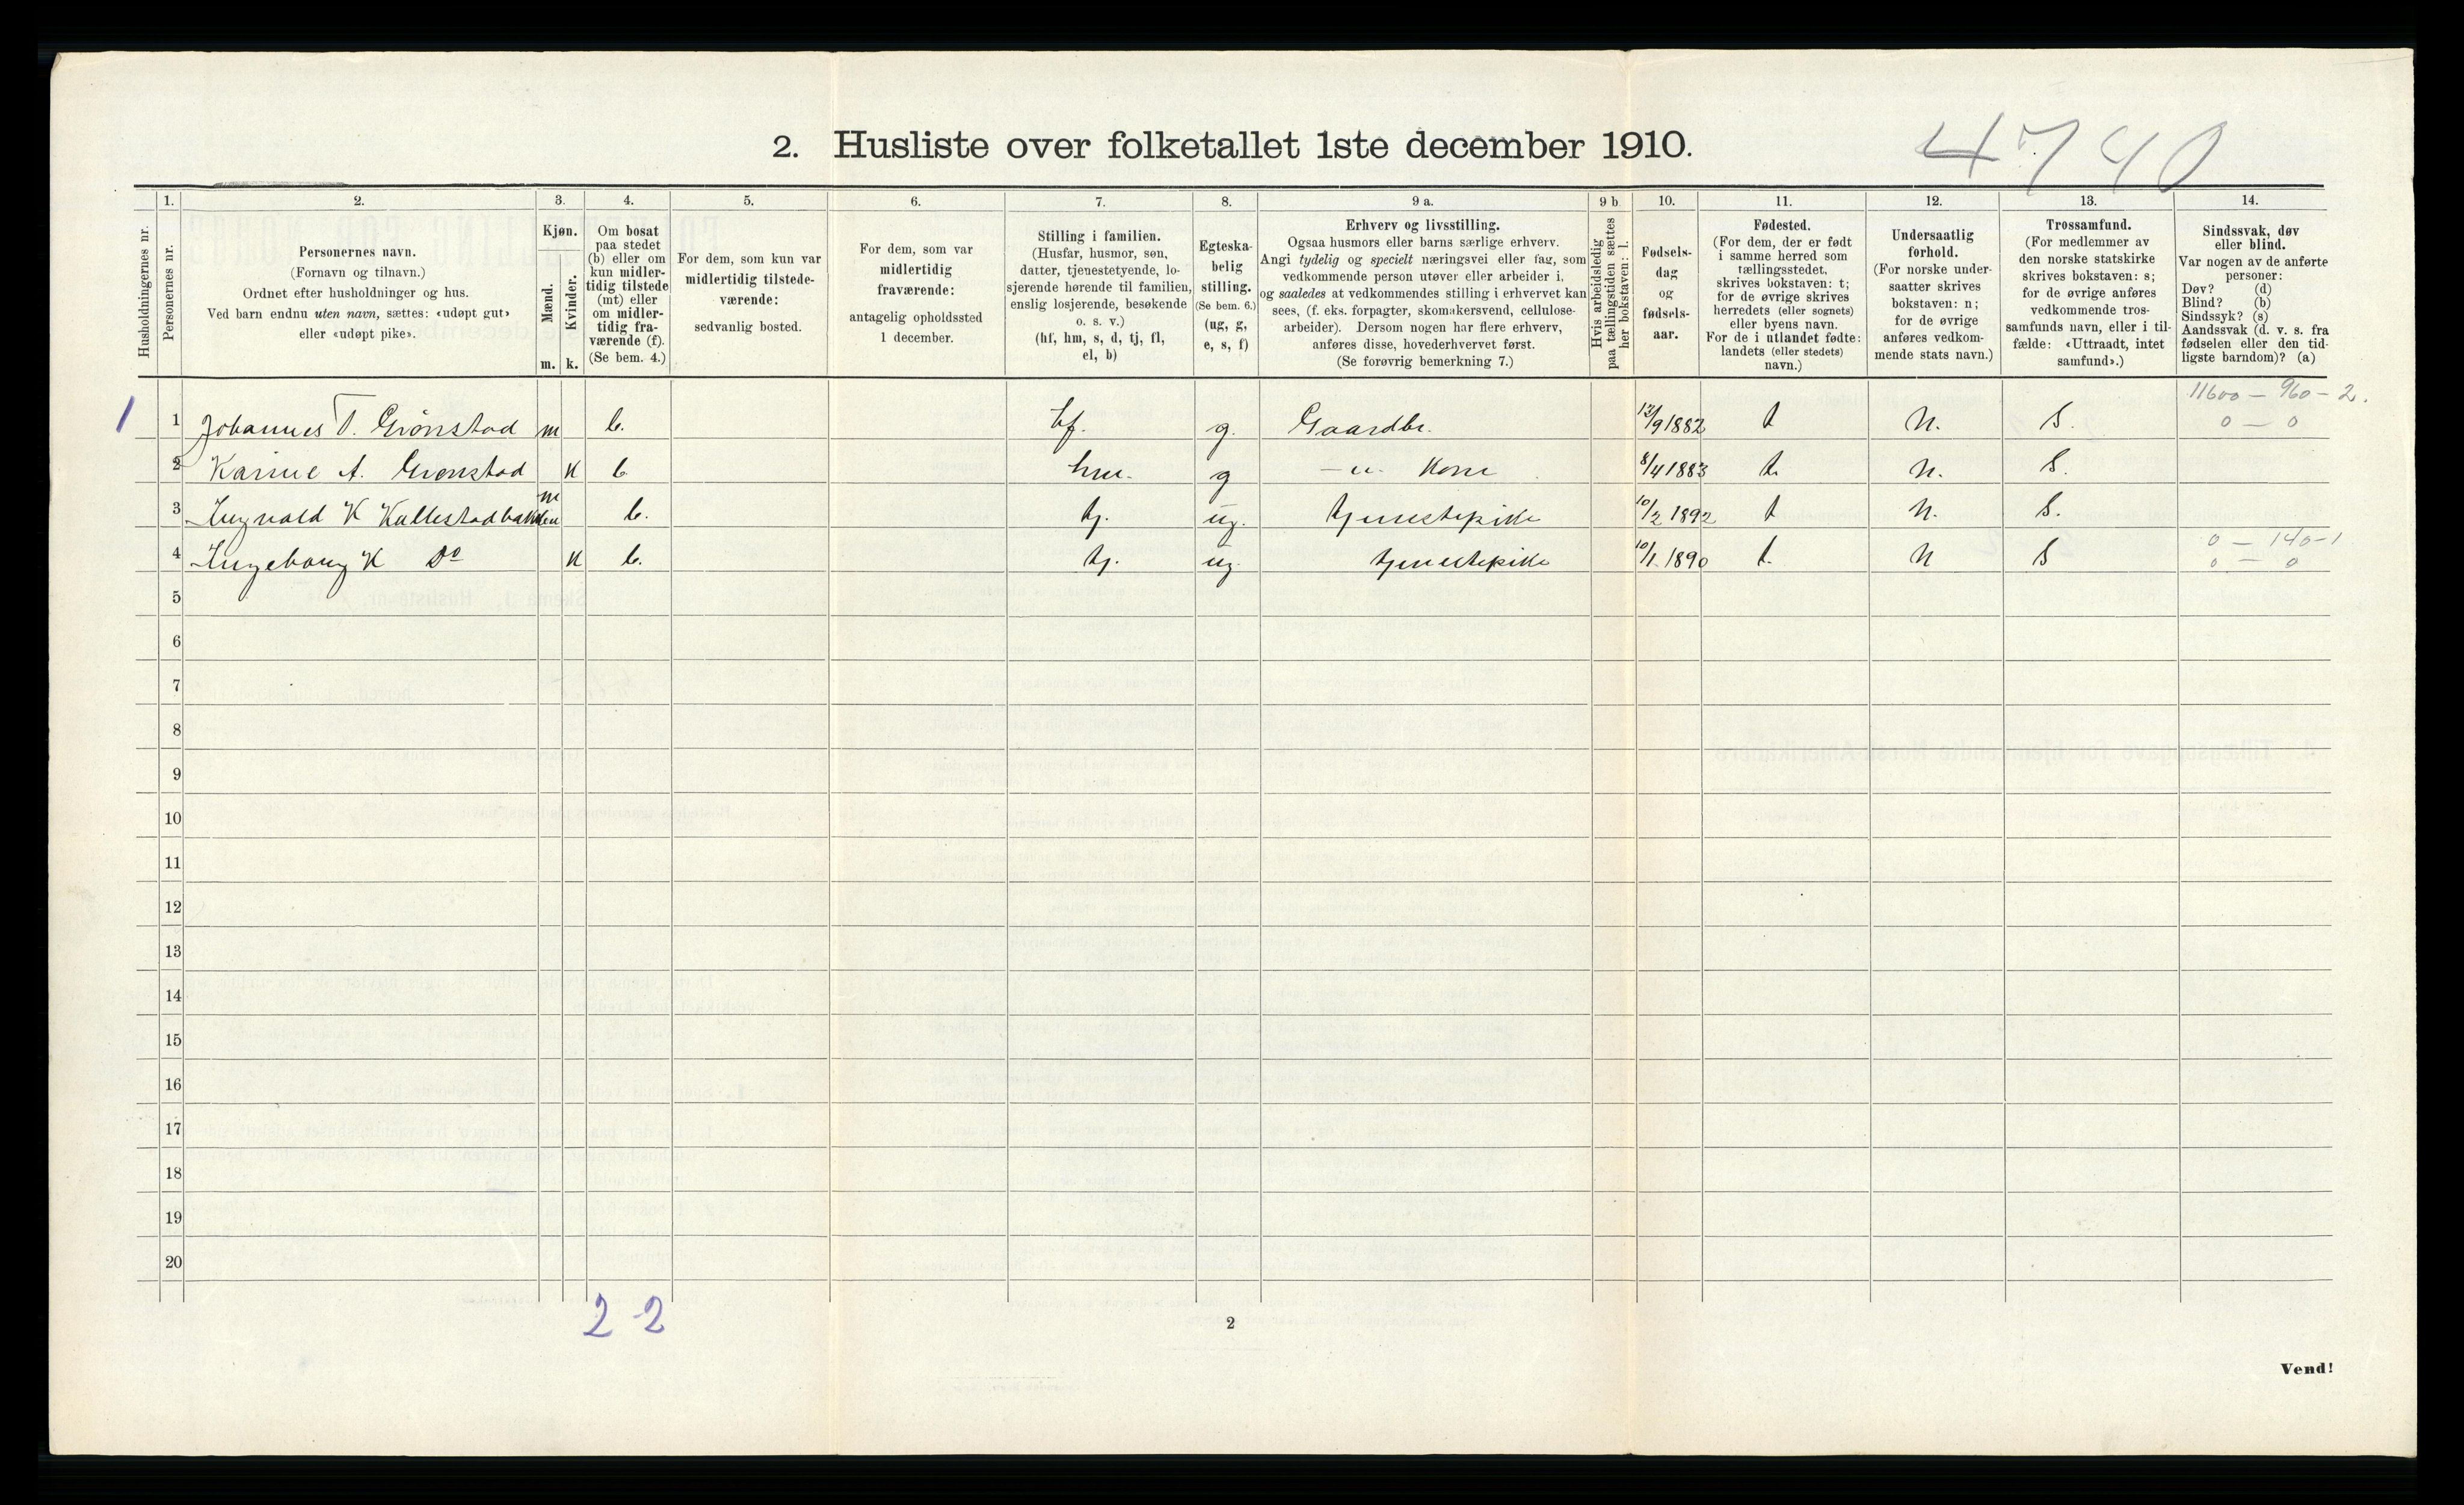 4740
2. Husliste over folketallet 1ste december 1910.
Husholdningernes nr.
1.
Personernes nr.
2.
Personernes navn.
(Fornavn og tilnavn.)
Ordnet efter husholdninger og hus.
Ved barn endnu uten navn, sættes: «udøpt gut»
eller «udøpt pike».
3.
Kjøn.
Mænd.
Kvinder.
m. k.
4.
Om bosat
paa stedet
(b) eller om
kun midler-
tidig tilstede
(mt) eller
om midler-
tidig fra-
værende (f).
(Se bem. 4.)
5.
For dem, som kun var
midlertidig tilstede-
værende:
sedvanlig bosted.
6.
For dem, som var
midlertidig
fraværende:
antagelig opholdssted
1 december.
7.
Stilling i familien.
(Husfar, husmor, søn,
datter, tjenestetyende, lo-
sjerende hørende til familien,
enslig losjerende, besøkende
o. s. v.)
(hf, hm, s, d, tj, fl,
el, b)
8.
Egteska-
belig
stilling.
(Se bem. 6.)
(ug, g,
e, s, f)
9 a.
Erhverv og livsstilling.
Ogsaa husmors eller barns særlige erhverv.
Angi tydelig og specielt næringsvei eller fag, som
vedkommende person utøver eller arbeider i,
og saaledes at vedkommendes stilling i erhvervet kan
sees, (f. eks. forpagter, skomakersvend, cellulose-
arbeider). Dersom nogen har flere erhverv,
anføres disse, hovederhvervet først.
(Se forøvrig bemerkning 7.)
9 b.
Hvis arbeidsledig
paa tællingstiden sættes
her bokstaven: l.
10.
Fødsels-
dag
og
fødsels-
aar.
11.
Fødested.
(For dem, der er født
i samme herred som
tællingsstedet,
skrives bokstaven: t;
for de øvrige skrives
herredets (eller sognets)
eller byens navn.
For de i utlandet fødte:
landets (eller stedets)
navn.)
12.
Undersaatlig
forhold.
(For norske under-
saatter skrives
bokstaven: n;
for de øvrige
anføres vedkom-
mende stats navn.)
13.
Trossamfund.
(For medlemmer av
den norske statskirke
skrives bokstaven: s;
for de øvrige anføres
vedkommende tros-
samfunds navn, eller i til-
fælde: «Uttraadt, intet
samfund».)
14.
Sindssvak, døv
eller blind.
Var nogen av de anførte
personer:
Døv? (d)
Blind? (b)
Sindssyk? (s)
Aandssvak (d. v. s. fra
fødselen eller den tid-
ligste barndom)? (a)
11600 – 960 – 2.
1 1 Johannes T. Grönstad m b. hf. g. Gaardbr. 12/9 1882 t N. S. 0 – 0
2 Karine A. Grönstad K b hm. g –"– Kone 8/4 1883 t. N. S.
3 Ingvald K Kallestadbakken m b. tj. ug. tjenestepike 10/2 1892 t N. S.
0 – 140 – 1
4 Ingeborg K Do K b. tj. ug. tjenestepike 10/1 1890 t. N S 0 – 0
5
6
7
8
9
10
11
12
13
14
15
16
17
18
19
20
2 2
2
Vend!